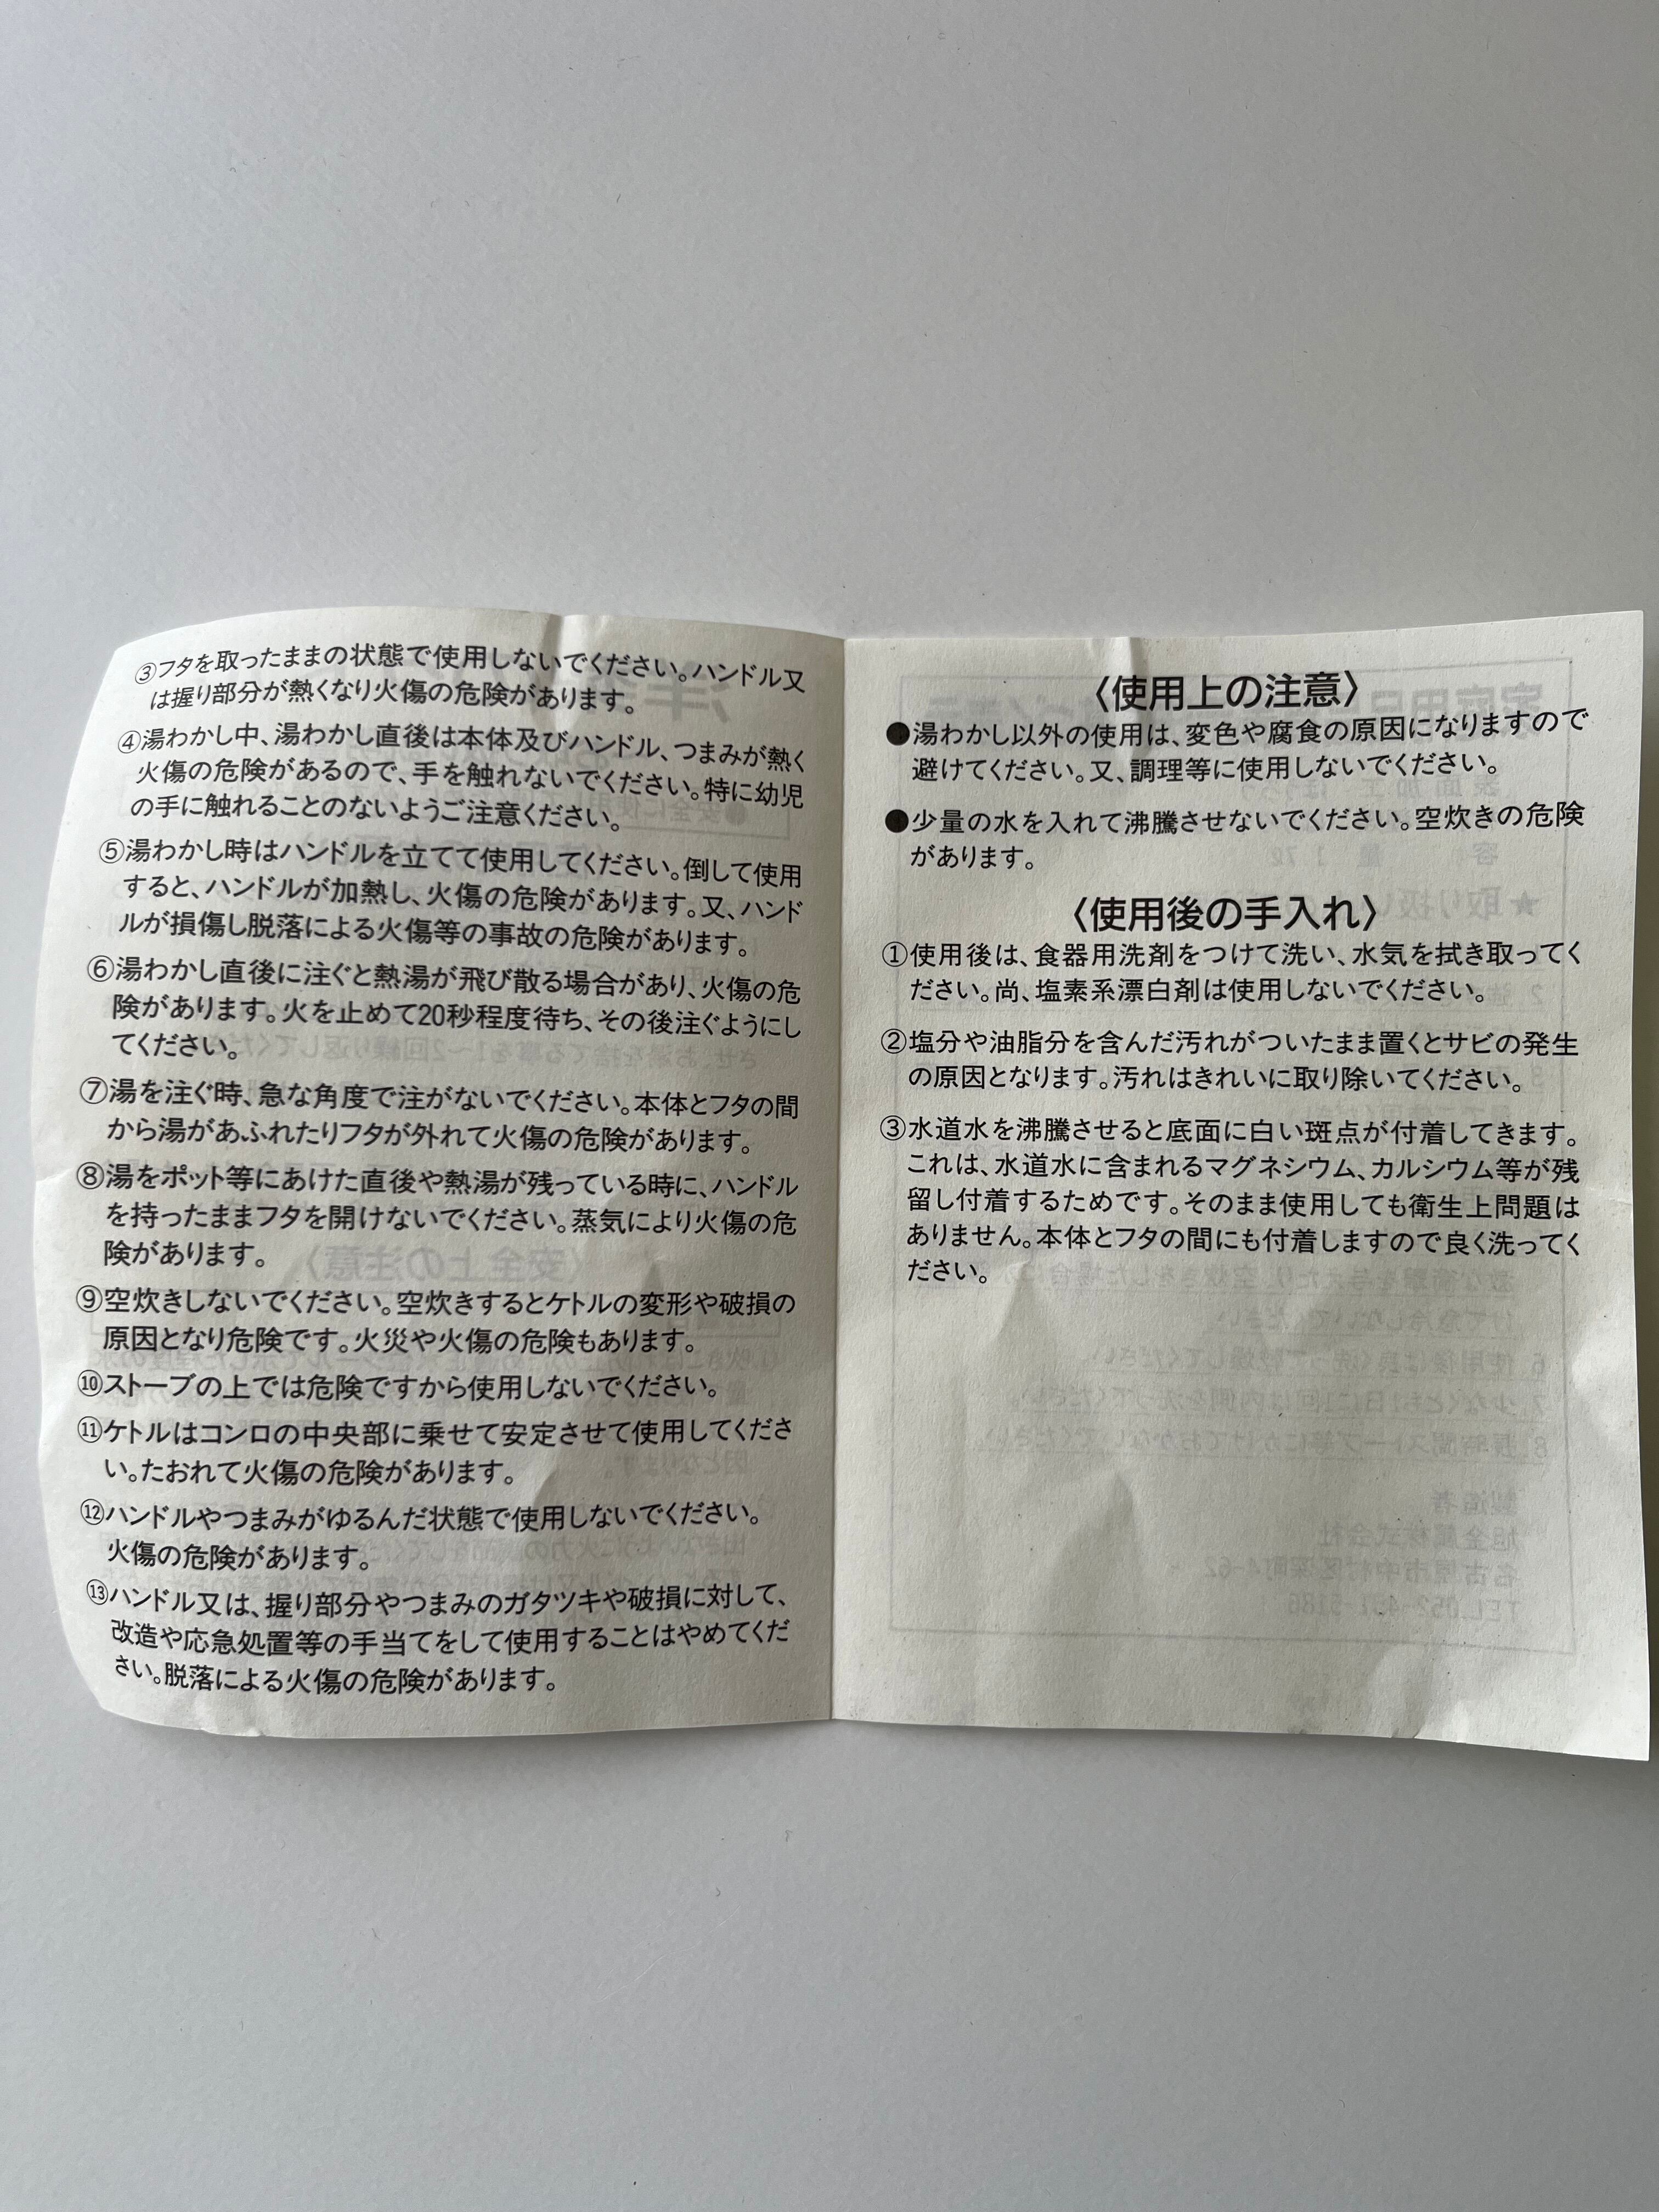 ③フタを取ったままの状態で使用しないでください。ハンドル又
は握り部分が熱くなり火傷の危険があります。
④湯わかし中、湯わかし直後は本体及びハンドル、つまみが熱く
火傷の危険があるので、手を触れないでください。特に幼児
の手に触れることのないようご注意ください。
⑤湯わかし時はハンドルを立てて使用してください。倒して使用
すると、ハンドルが加熱し、火傷の危険があります。又、ハンド
ルが損傷し脱落による火傷等の事故の危険があります。
⑥湯わかし直後に注ぐと熱湯が飛び散る場合があり、火傷の危
険があります。火を止めて20秒程度待ち、その後注ぐようにし
てください。
⑦湯を注ぐ時、急な角度で注がないでください。本体とフタの間
から湯があふれたりフタが外れて火傷の危険があります。
⑧湯をポット等にあけた直後や熱湯が残っている時に、ハンドル
を持ったままフタを開けないでください。蒸気により火傷の危
険があります。
⑨空炊きしないでください。空炊きするとケトルの変形や破損の
原因となり危険です。火災や火傷の危険もあります。
⑩ストーブの上では危険ですから使用しないでください。
⑪ケトルはコンロの中央部に乗せて安定させて使用してくださ
い。たおれて火傷の危険があります。
⑫ハンドルやつまみがゆるんだ状態で使用しないでください。
火傷の危険があります。
⑬ハンドル又は、握り部分やつまみのガタツキや破損に対して、
改造や応急処置等の手当てをして使用することはやめてくだ
さい。脱落による火傷の危険があります。
〈使用上の注意〉
●湯わかし以外の使用は、変色や腐食の原因になりますので
避けてください。又、調理等に使用しないでください。
●少量の水を入れて沸騰させないでください。空炊きの危険
があります。
〈使用後の手入れ〉
①使用後は、食器用洗剤をつけて洗い、水気を拭き取ってく
ださい。尚、塩素系漂白剤は使用しないでください。
②塩分や油脂分を含んだ汚れがついたまま置くとサビの発生
の原因となります。汚れはきれいに取り除いてください。
③水道水を沸騰させると底面に白い斑点が付着してきます。
これは、水道水に含まれるマグネシウム、カルシウム等が残
留し付着するためです。そのまま使用しても衛生上問題は
ありません。本体とフタの間にも付着しますので良く洗ってく
ださい。